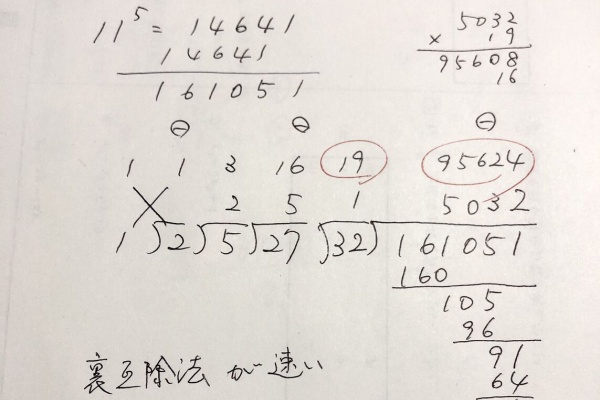 11⁵ = 14641
14641
161051
5032
× 19
95608
16
⊖ ⊖ ⊖
1 1 3 16 19 95624
2 5 1 5032
1)2)5)27)32)161051
160
105
96
91
64
裏互除法が速い